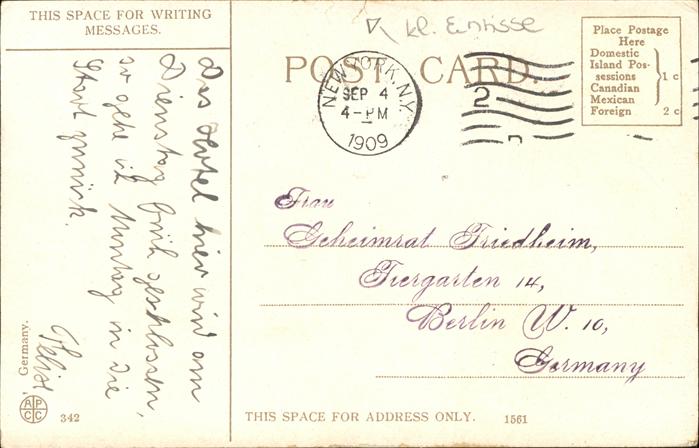 THIS SPACE FOR WRITING
MESSAGES.
Das Hotel hier wird am
Dienstag früh geschlossen,
so gehe ich Montag in die
Stadt zurück.
Felix
Germany.
A P
C C
342
kl. Einrisse
POST CARD.
NEW YORK, N.Y.
SEP 4
4-PM
1909
2
Place Postage
Here
Domestic
Island Pos-
sessions
Canadian
Mexican
1 c
Foreign 2 c
Frau
Geheimrat Friedheim,
Tiergarten 14,
Berlin W. 10,
Germany
THIS SPACE FOR ADDRESS ONLY. 1561